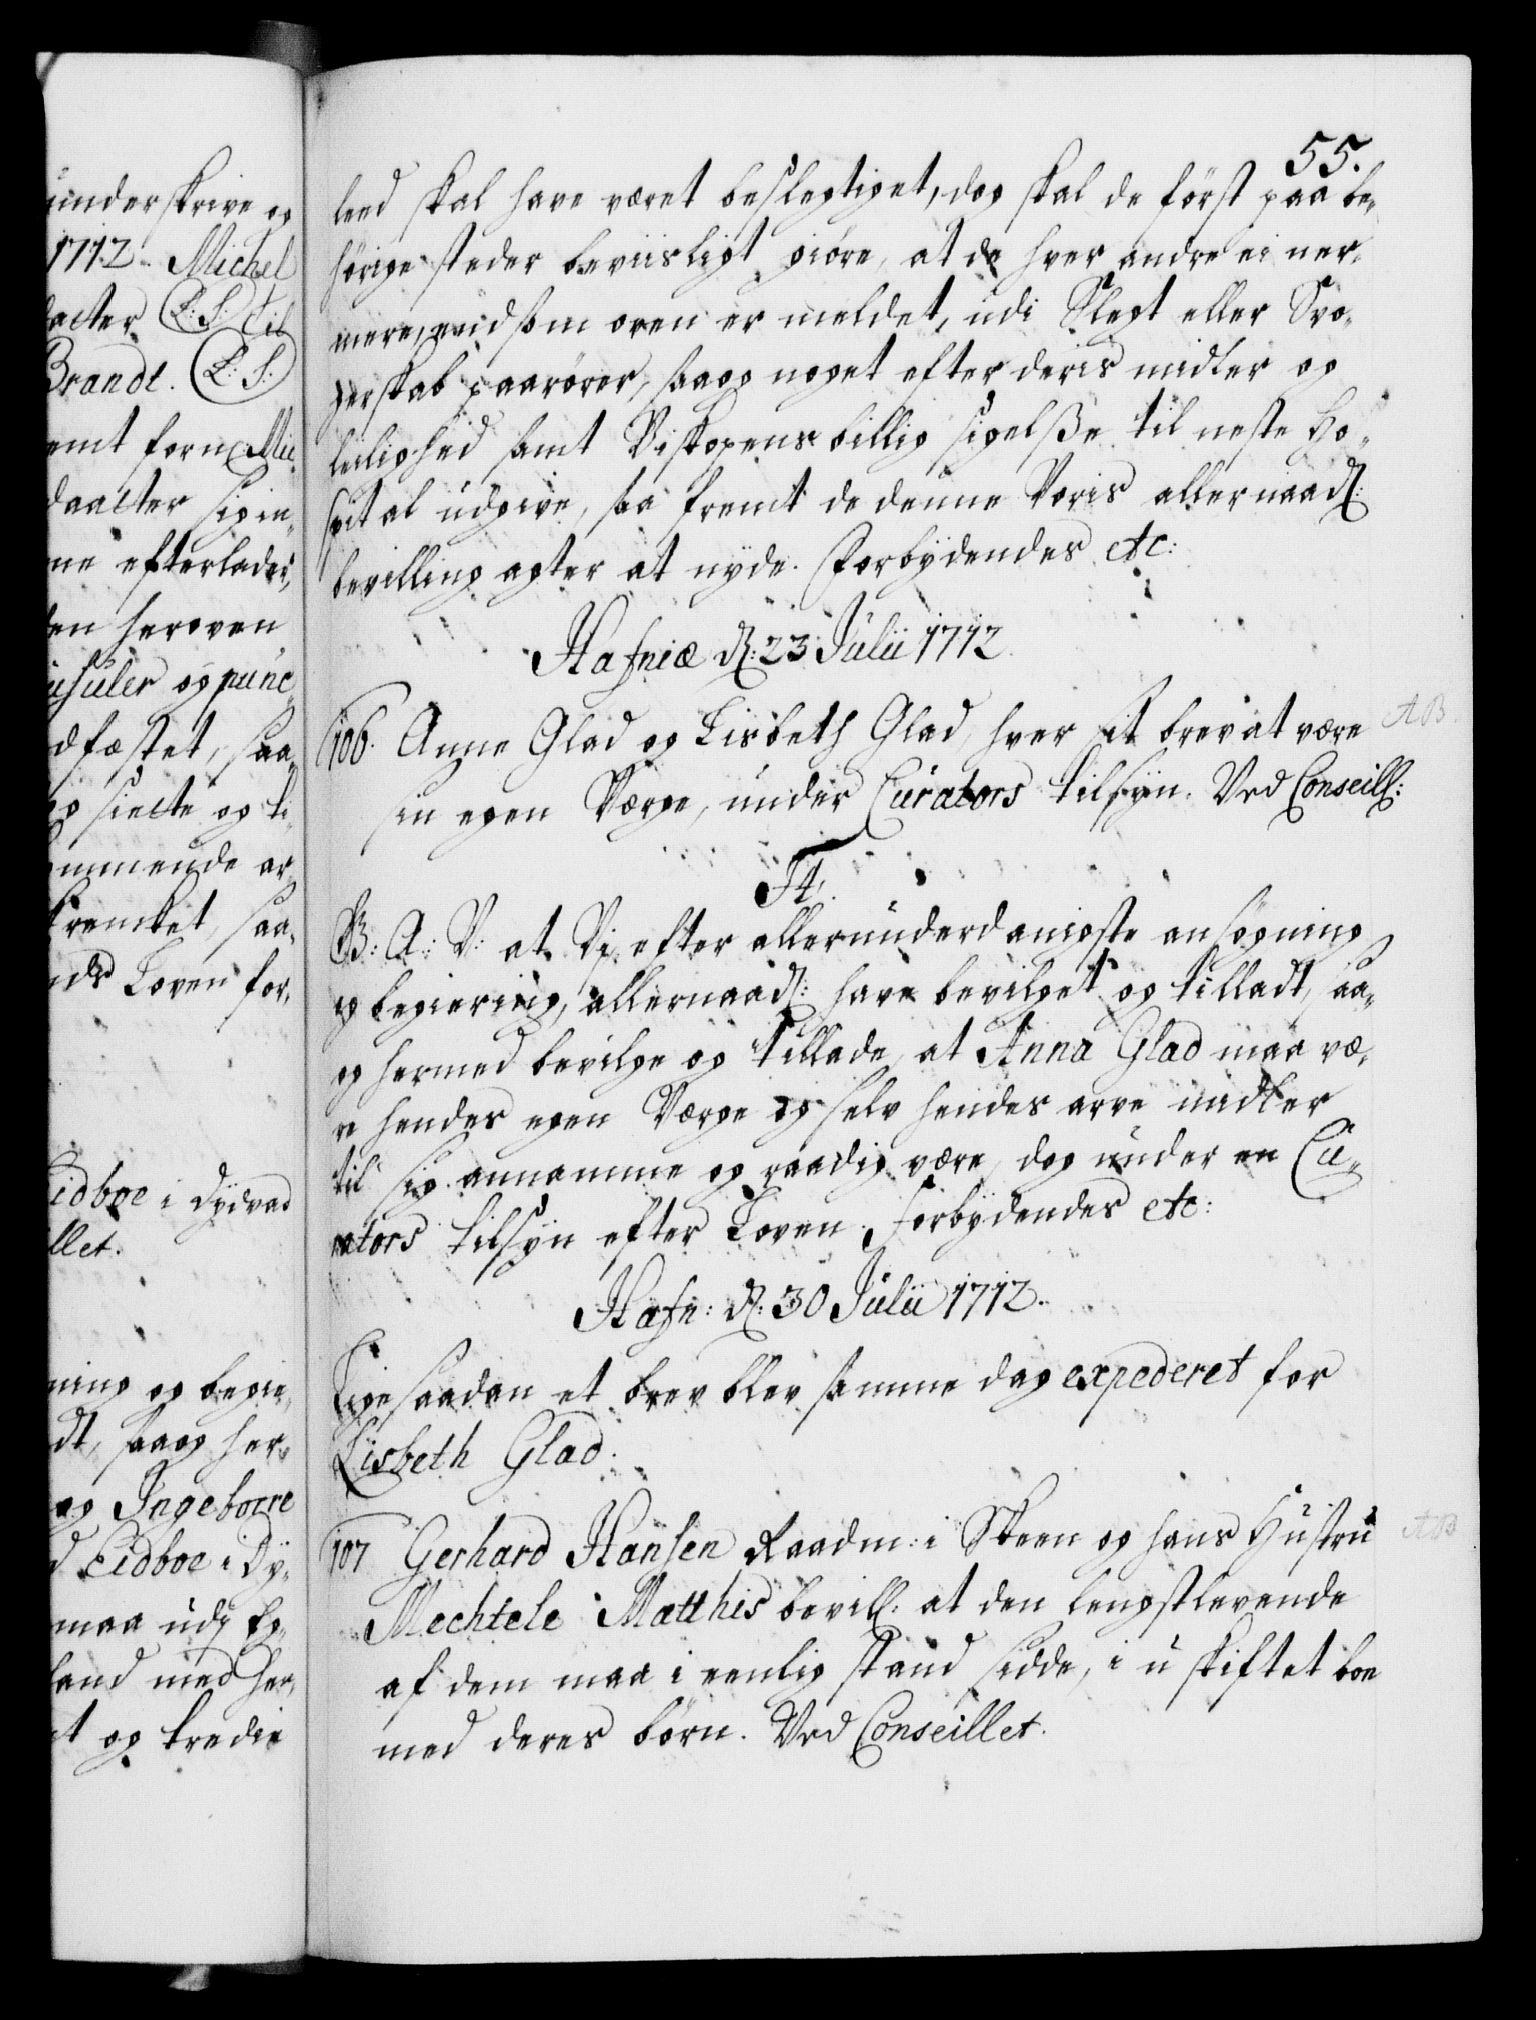 underskrive og
1712. Michel
acter (L:S:) Til
Brandt. (L:S:)
emt forne Mic
daatter sig in-
ne efterlader,
den heroven
usuler og punc-
dfæstet, saa-
og siette og ti-
ommende ar-
fremket, saa-
nds Loven for,
Eidboe i Dydvad
llet.
ning og begie-
dt, saa og her-
og Ingeborre
d Eidboe i Dy-
maa udj Eg-
land med her,
t og tredie
55.
leed skal have været beslegtiget, dog skal de först paa be-
hörige steder beviisligt giöre, at de hver andre ei ner-
mere, end som oven er meldet, udi Slegt eller Svo-
gerskab paarörer, saa og noget efter deris midler og
leilighed samt Biskopens billig sigelsse til neste Ho-
spital udgive, saa fremt de denne Voris allernaad:
bevilling agter at nyde. Forbydendes etc:
Hafniæ d: 23 Julii 1712.
106. Anne Glad og Lisbeth Glad, hver sit brev at være
AB.
sin egen Værge, under Curators tilsyn. Ved Conseill:
F4.
G: A: V: at Vi efter allerunderdanigste ansögning
og begiering, allernaad: have bevilget og tilladt, saa-
og hermed bevilge og tillade, at Anna Glad maa væ-
re hendes egen Værge og selv hendes arve midler
til sig annamme og raadig være, dog under en Cu-
rators tilsyn efter Loven. Forbydendes etc:
Hafn: d: 30 Julii 1712.
Lige saadan et brev blev samme dag expederet for
Lisbeth Glad.
107 Gerhard Hansen Raadm: i Skeen og hans Hustru
AB
Mechtele Matthis bevill: at den lengstlevende
af dem maa i eenlig stand sidde, i u skiftet boe
med deres börn. Ved Conseillet.